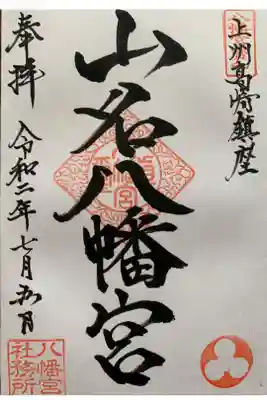 上州高崎鎮座
山名八幡宮
奉拝
令和二年七月五日
八幡宮
社務所